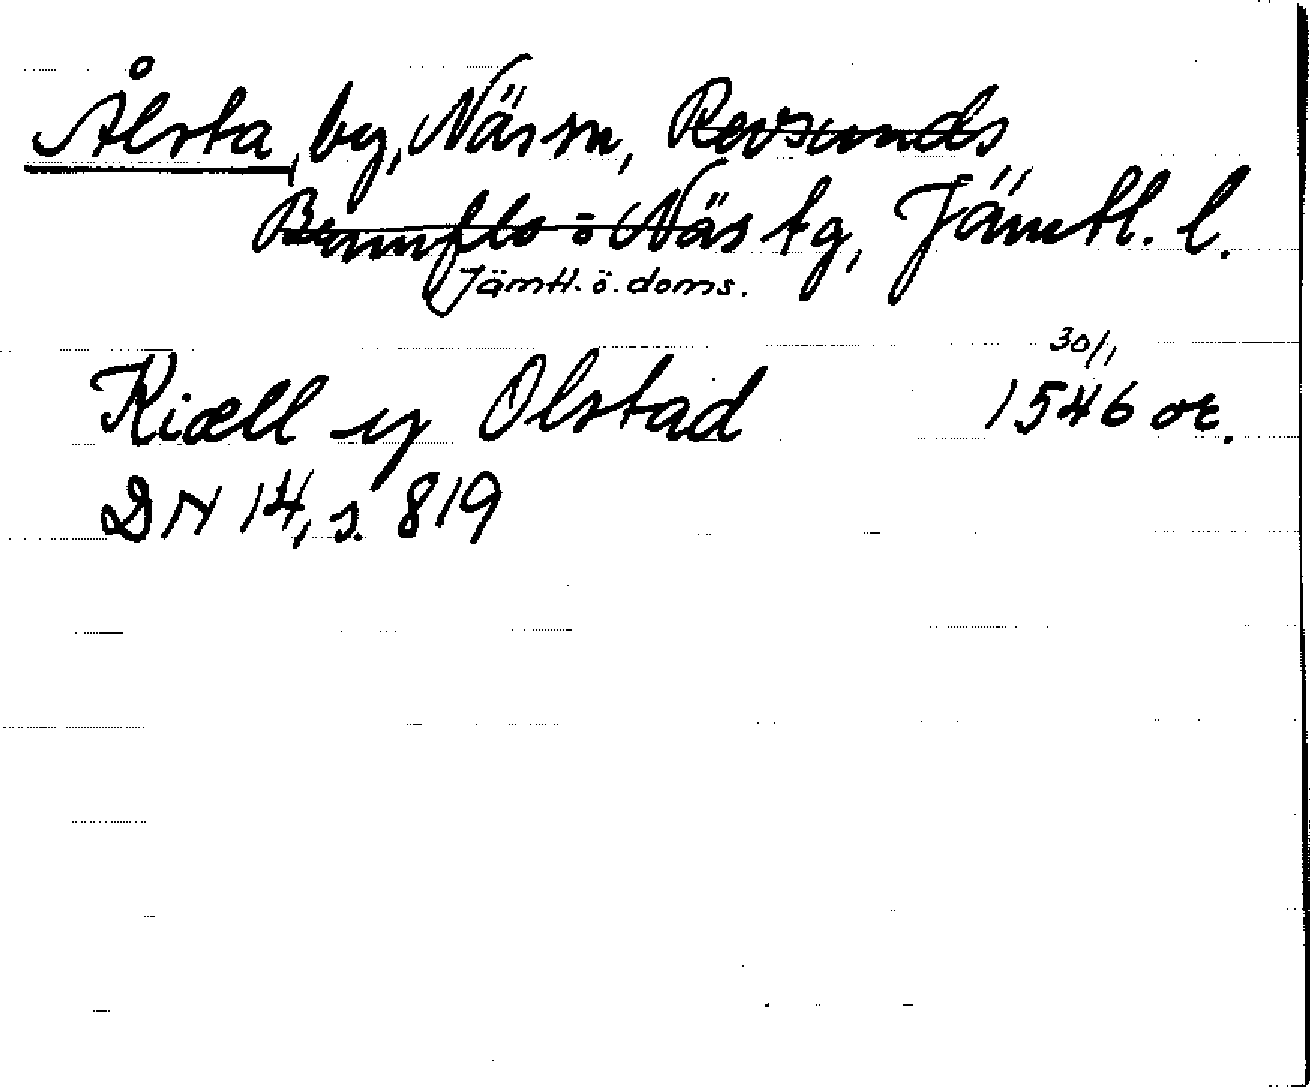 Ålsta, by, Näs sn, Revsunds
Brunflo o Näs tg, Jämtl. l.
Jämtl. ö. doms.
30/1
Kiæll y Olstad 1546 or.
DN 14, s. 819